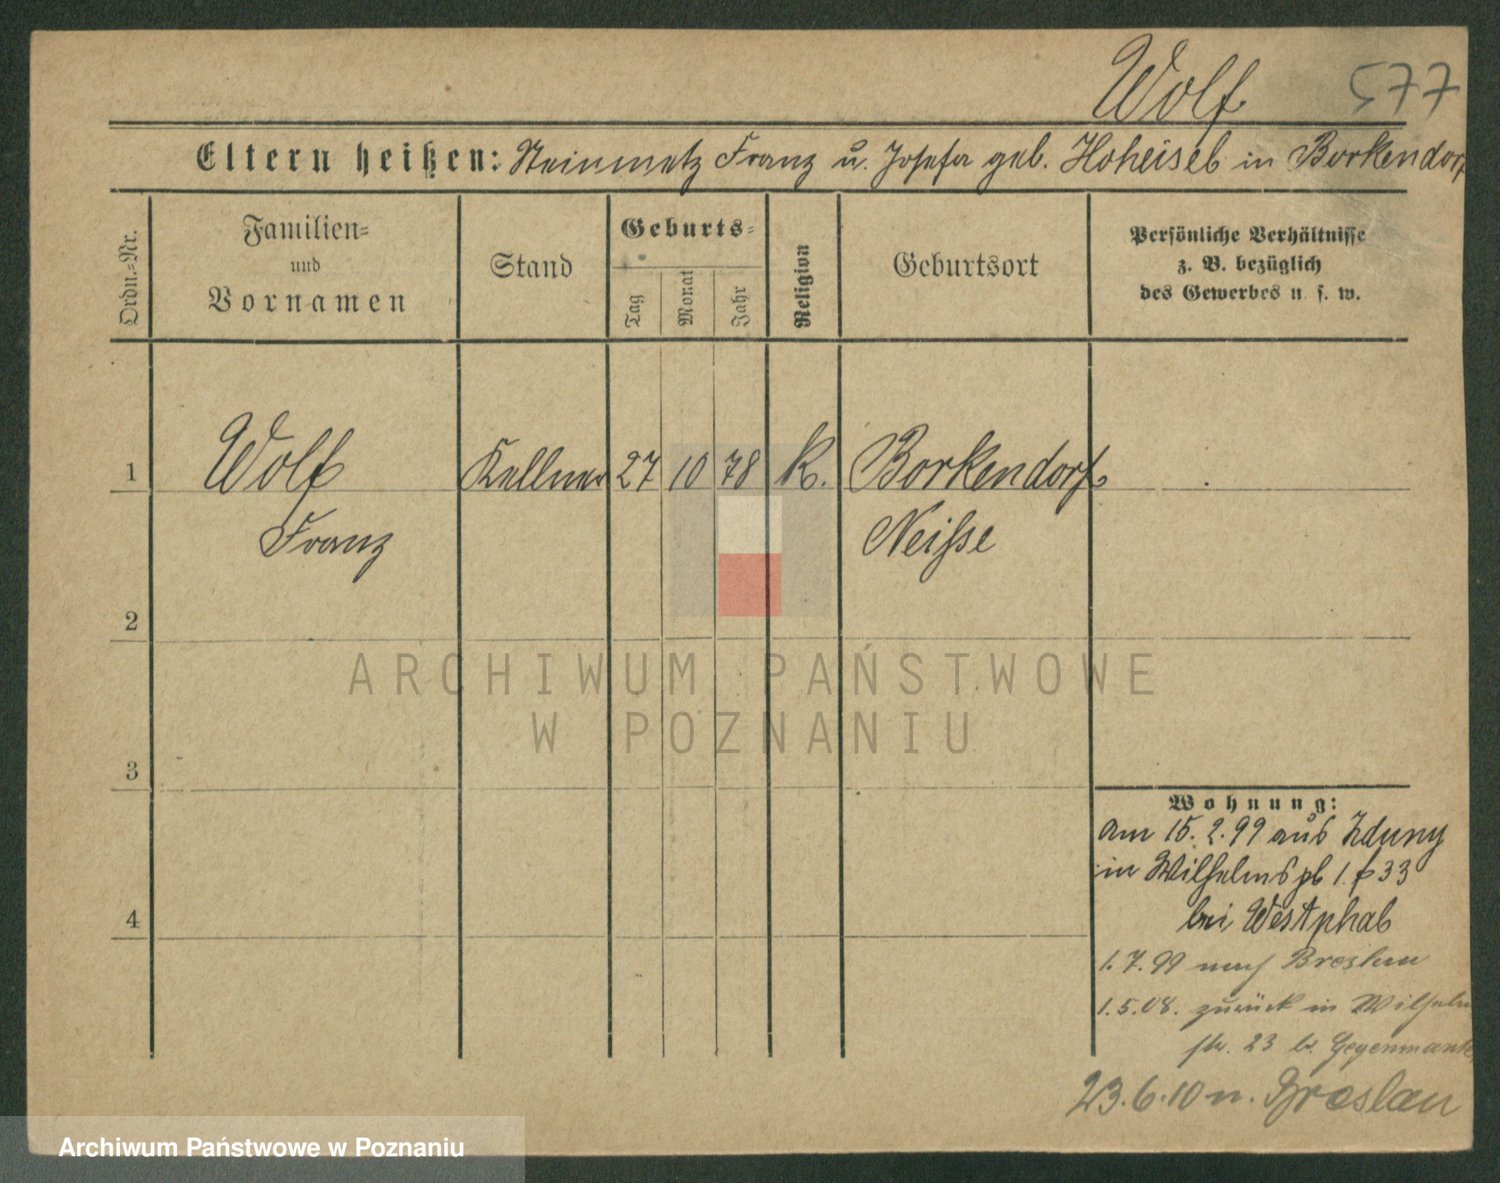 Wolf 577
Eltern heißen: Steinmetz Franz u. Josefa geb. Hoheisel in Borkendorf
Ordn.-Nr.
Familien-
und
Vornamen
Stand
Geburts-
Tag
Monat
Jahr
Religion
Geburtsort
Persönliche Verhältnisse
z. B. bezüglich
des Gewerbes u. s. w.
1 Wolf Kellner 27 10 78 k. Borkendorf
Franz Neisse
2
3
4
ARCHIWUM PAŃSTWOWE
W POZNANIU
Wohnung:
am 15. 2. 99 aus Zduny
in Wilhelmspl 1. 33
bei Westphal
1. 7. 99 nach Breslau
1. 5. 08. zurück in Wilhelm
str. 23 b.
23. 6. 10 n. Breslau
Archiwum Państwowe w Poznaniu